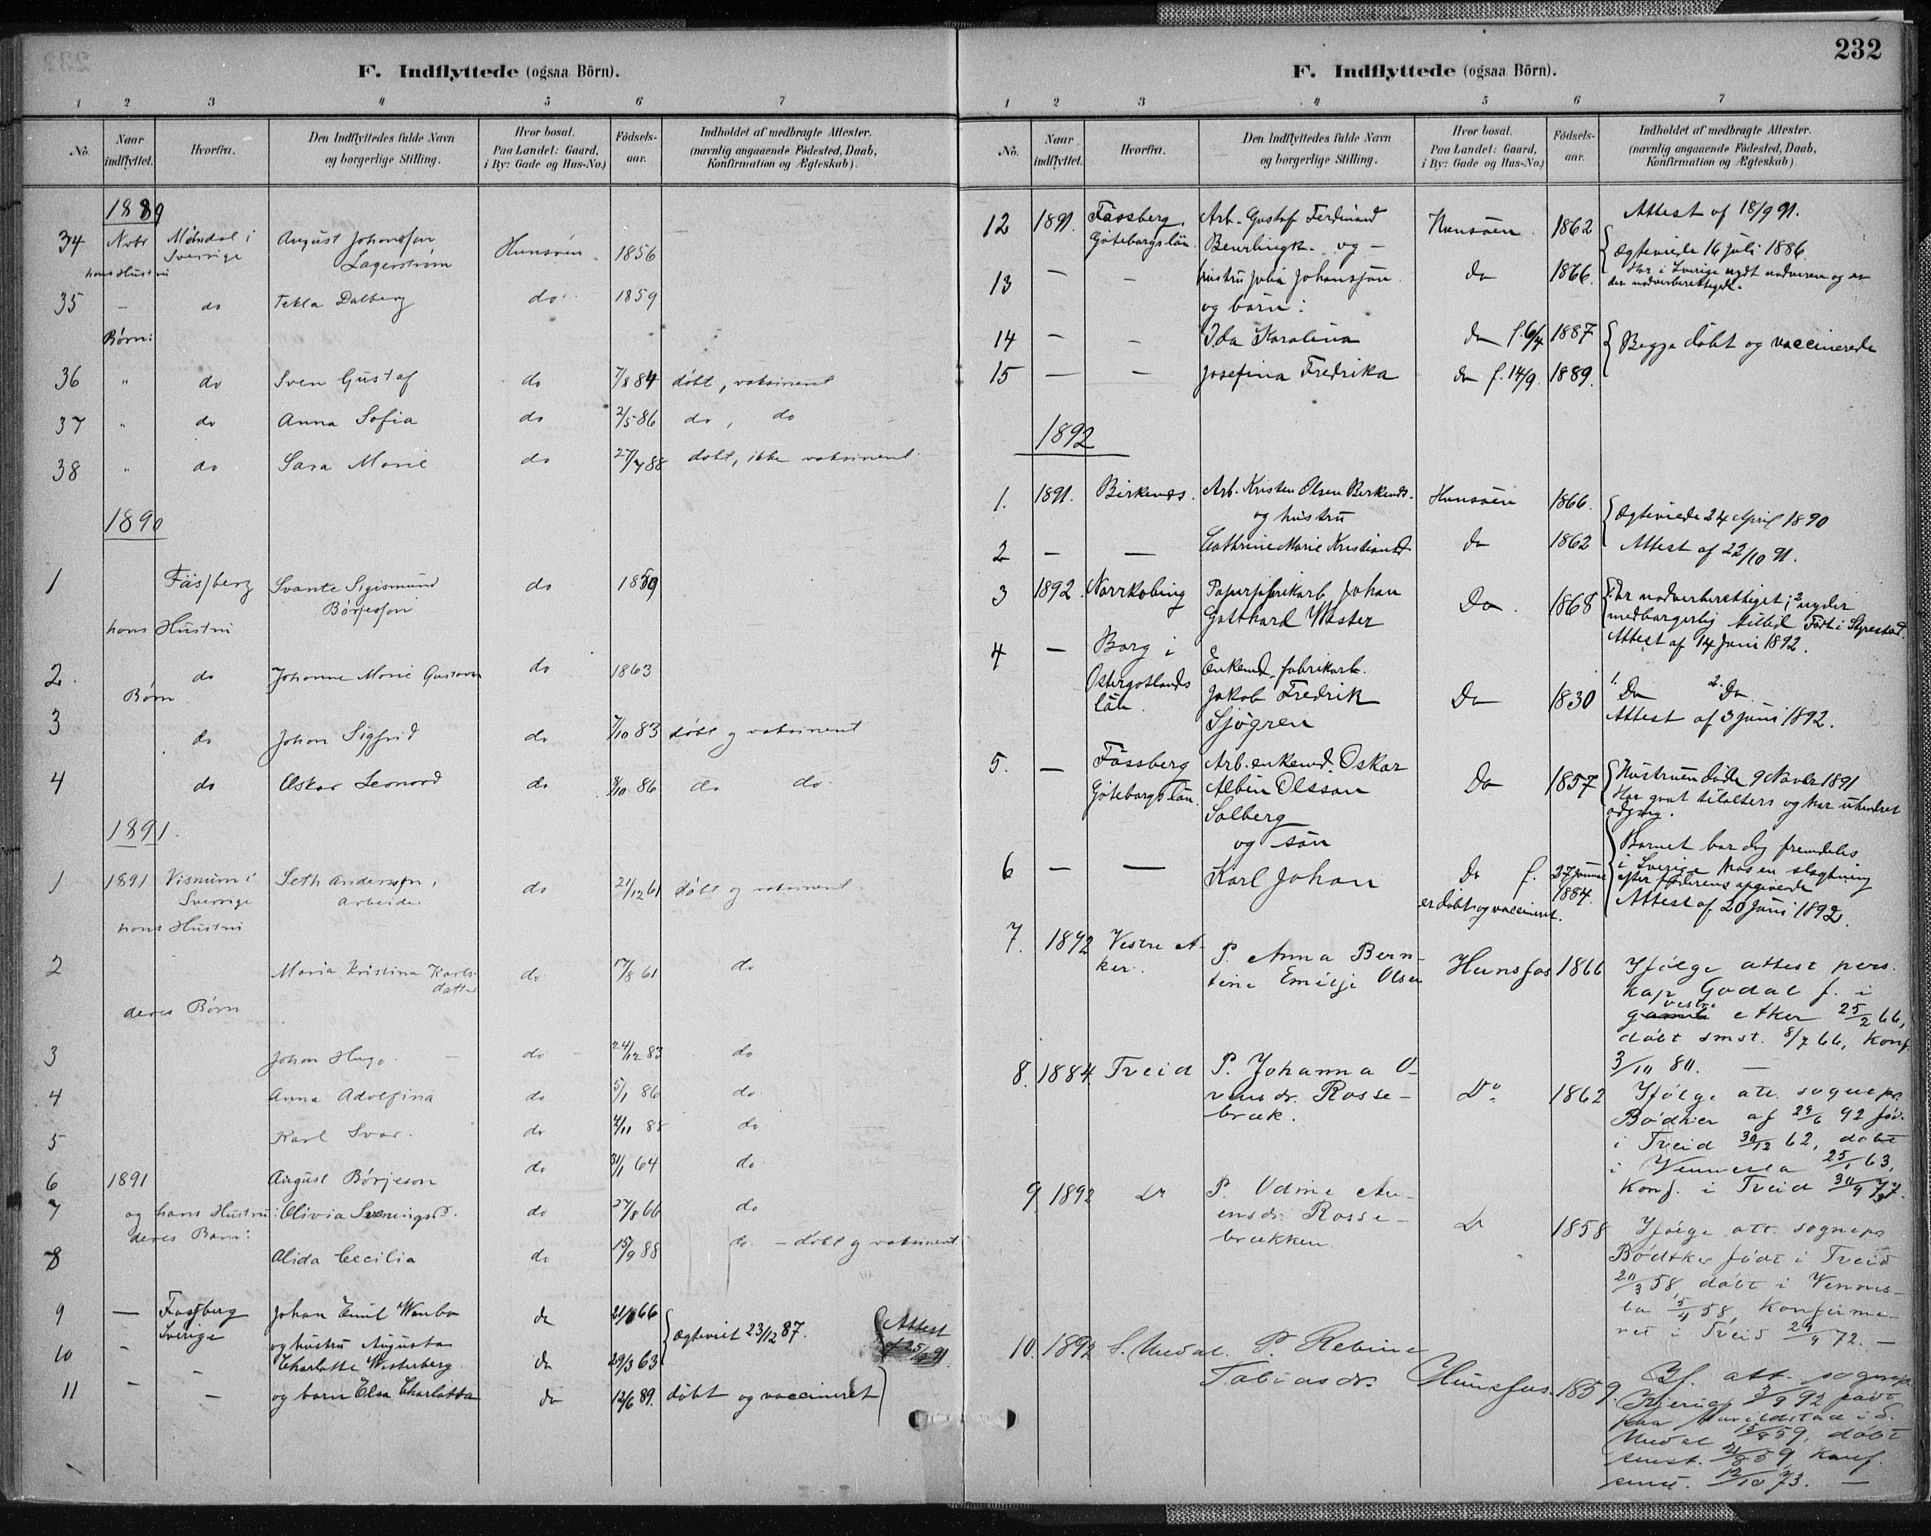 232
F. Indflyttede (ogsaa Börn).
1 2 3 4 5 6 7
No. Naar indflyttet. Hvorfra. Den Indflyttedes fulde Navn og borgerlige Stilling. Hvor bosat. Paa Landet: Gaard, i By: Gade og Hus-No.) Fødsels-aar. Indholdet af medbragte Attester. (navnlig angaaende Fødested, Daab, Konfirmation og Ægteskab).
1889
34 Novbr Mölndal i Sverrige August Johansson Lagerström Hunsöen 1856
hans Hustru
35 – do Tekla Dalberg do 1859
Børn:
36 " do Sven Gustaf do 7/8 84 døbt, vaksineret
37 " do Anna Sofia do 2/5 86 do, do
38 " do Sara Marie do 27/7 88 døbt, ikke vaksineret
1890
1 Fässberg Svante Sigismund Børjesson do 1859
hans Hustru
2 do Johanne Marie do 1863
Børn
3 do Johan Sigfrid do 7/10 83 døbt g vaksineret
4 do Oskar Leonard do 8/10 86 do do
1891.
1 1891 Visnum i Sverrige Seth Andersson, Arbeider do 21/12 61 døbt g vaksineret
hans Hustru
2 Maria Kristina Karlsdatter do 17/8 61 do
deres Børn
3 Johan Hugo do 24/12 83 do
4 Anna Adolfina do 5/1 86 do
5 Karl Ivar do 4/11 88 do
6 1891 August Börjeson do 31/1 64 do
7 og hans Hustru: Olivia do 27/8 66 do
deres Barn:
8 Alida Cecilia do 15/9 88 do – døbt g vaksineret
9 — Fassberg Sverige Johan Emil do 66 Ægteviet 23/12 87. Attest
10 – – og hustru Augusta Charlotte Westerberg do 29/3 63
11 – – og barn Elsa Charlotta do 12/6 89. døbt og vaccineret
F. Indflyttede (ogsaa Börn).
1 2 3 4 5 6 7
No. Naar indflyttet. Hvorfra. Den Indflyttedes fulde Navn og borgerlige Stilling. Hvor bosat. Paa Landet: Gaard, i By: Gade og Hus-No.) Fødsels-aar. Indholdet af medbragte Attester. (navnlig angaaende Fødested, Daab, Konfirmation og Ægteskab).
12 1891. Fässberg. Göteborgs län. Arb. Gustaf Ferdinand og – Hunsøen 1862 Attest af 18/9 91.
Ægteviede 16 Juli 1886.
13 – – hustru Julia Johansson. do 1866. Har i Sverige nydt nadveren og er
og börn:
14 – – Ida Karolina do f. 6/4 1887 Begge døbt og vaccinerede
15 – – Josefina Fredrika do f. 14/9. 1889.
1892
1. 1891. Birkenes. Arb. Kristen Olsen Birkenes. og hustru Hunsøen 1866. Ægteviede 24 April 1890
2 – — Cathrine Marie Kristiansd do 1862 Attest af 22/10 91.
3 1892 Norrköbing Johan Gotthard Wester Do. 1868 Er nadverberettiget; 2 nyder medborgerlig tillid Født i Styrestad. Attest af 14 Juni 1892.
4 — Borg i Östergötlands län. Enkemd. fabrikarb. Jakob Fredrik Sjögren Do 1830 1. Do 2. Do Attest af 3 Juni 1892.
5. — Fässberg Göteborgs län. Arb. enkemd. Oskar Albin Olsson Solberg og søn Do 1857 Hustruen døde 9 Novbr 1891
6 — — Karl Johan Do f. 27 Januar 1884. Barnet bor dog fremdeles i Sverige hos en slægtning efter faderens opgivende Attest af 20 Juni 1892.
er døbt og vaccineret.
7. 1892 Vestre Aker. P. Anna Berntine Emilje Olsen Hunsfos 1866 Ifölge attest pers. kap Godal f. i vestre Aker 25/2 66, döbt smst. 8/7 66, Konf. 3/10 80. —
8. 1884 Tveid P. Johanna Rossebræk. Do 1862 Ifölge att. sognepr. Bødtker af 29/6 92 föd. i Tveid 30/12 62, döbt i Vennesla 25/1 63, Konf. i Tveid 30/9 77.
9 1892 Do P. Udine Rossebrækken. Do 1858 Ifölge att. sognepr. Bødtker födt i Tveid 20/3 58, döbt i Vennesla 5/4 58, Konfirmeret i Tveid 29/9 72. —
10. 1892 S. Undal. P. Rebine Tobiasdr. Hunsfos. 1859. If. att. sognepr. 3/9 92 födt paa i S. Undal 59, döbt smst. 59 Konf. smst. 12/10 73. —